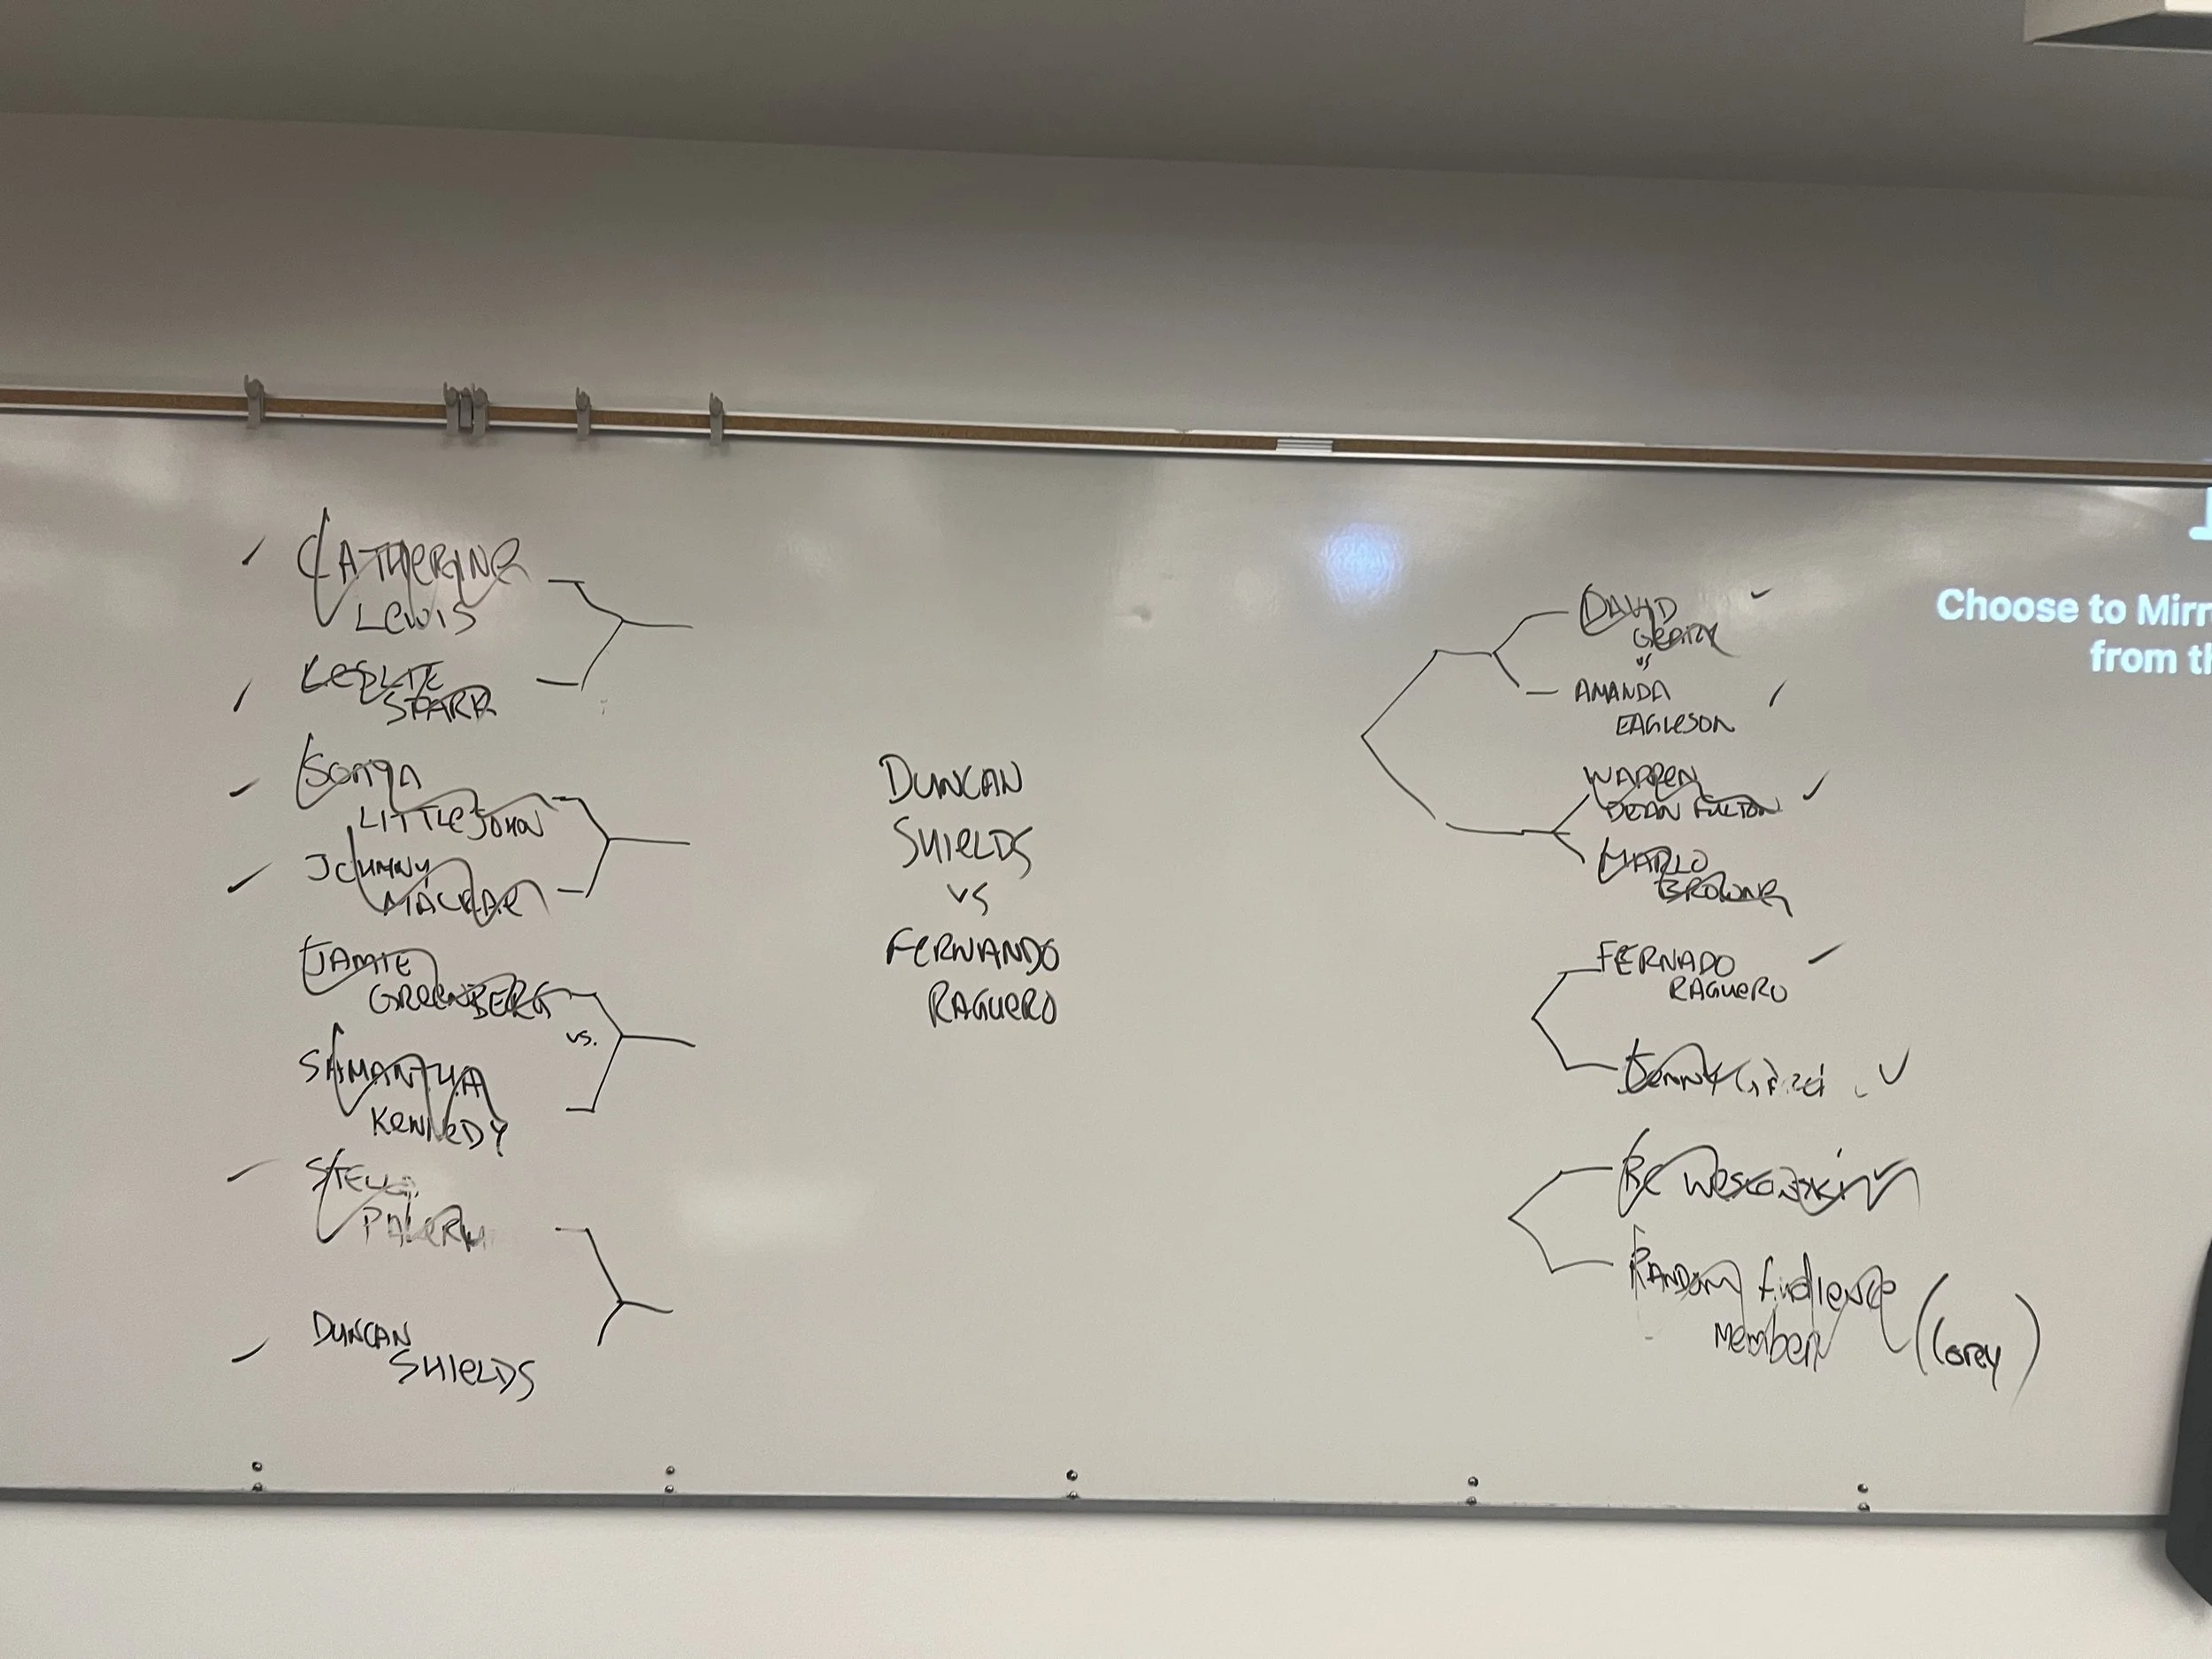 CATHERINE
LEWIS
LESLIE
STARR
SONYA
LITTLEJOHN
JOHNNY
MACRAE
JAMIE
GREENBERG
vs.
SAMANTHA
KENNEDY
STELLA
DUNCAN
SHIELDS
DUNCAN
SHIELDS
VS
FERNANDO
RAGUERO
DAVID
vs
AMANDA
EAGLESON
WARREN
DEAN FULTON
MARLO
BROWNE
FERNADO
RAGUERO
RC
RANDOM Audience
Member (Corey)
Choose to Mirr
from th